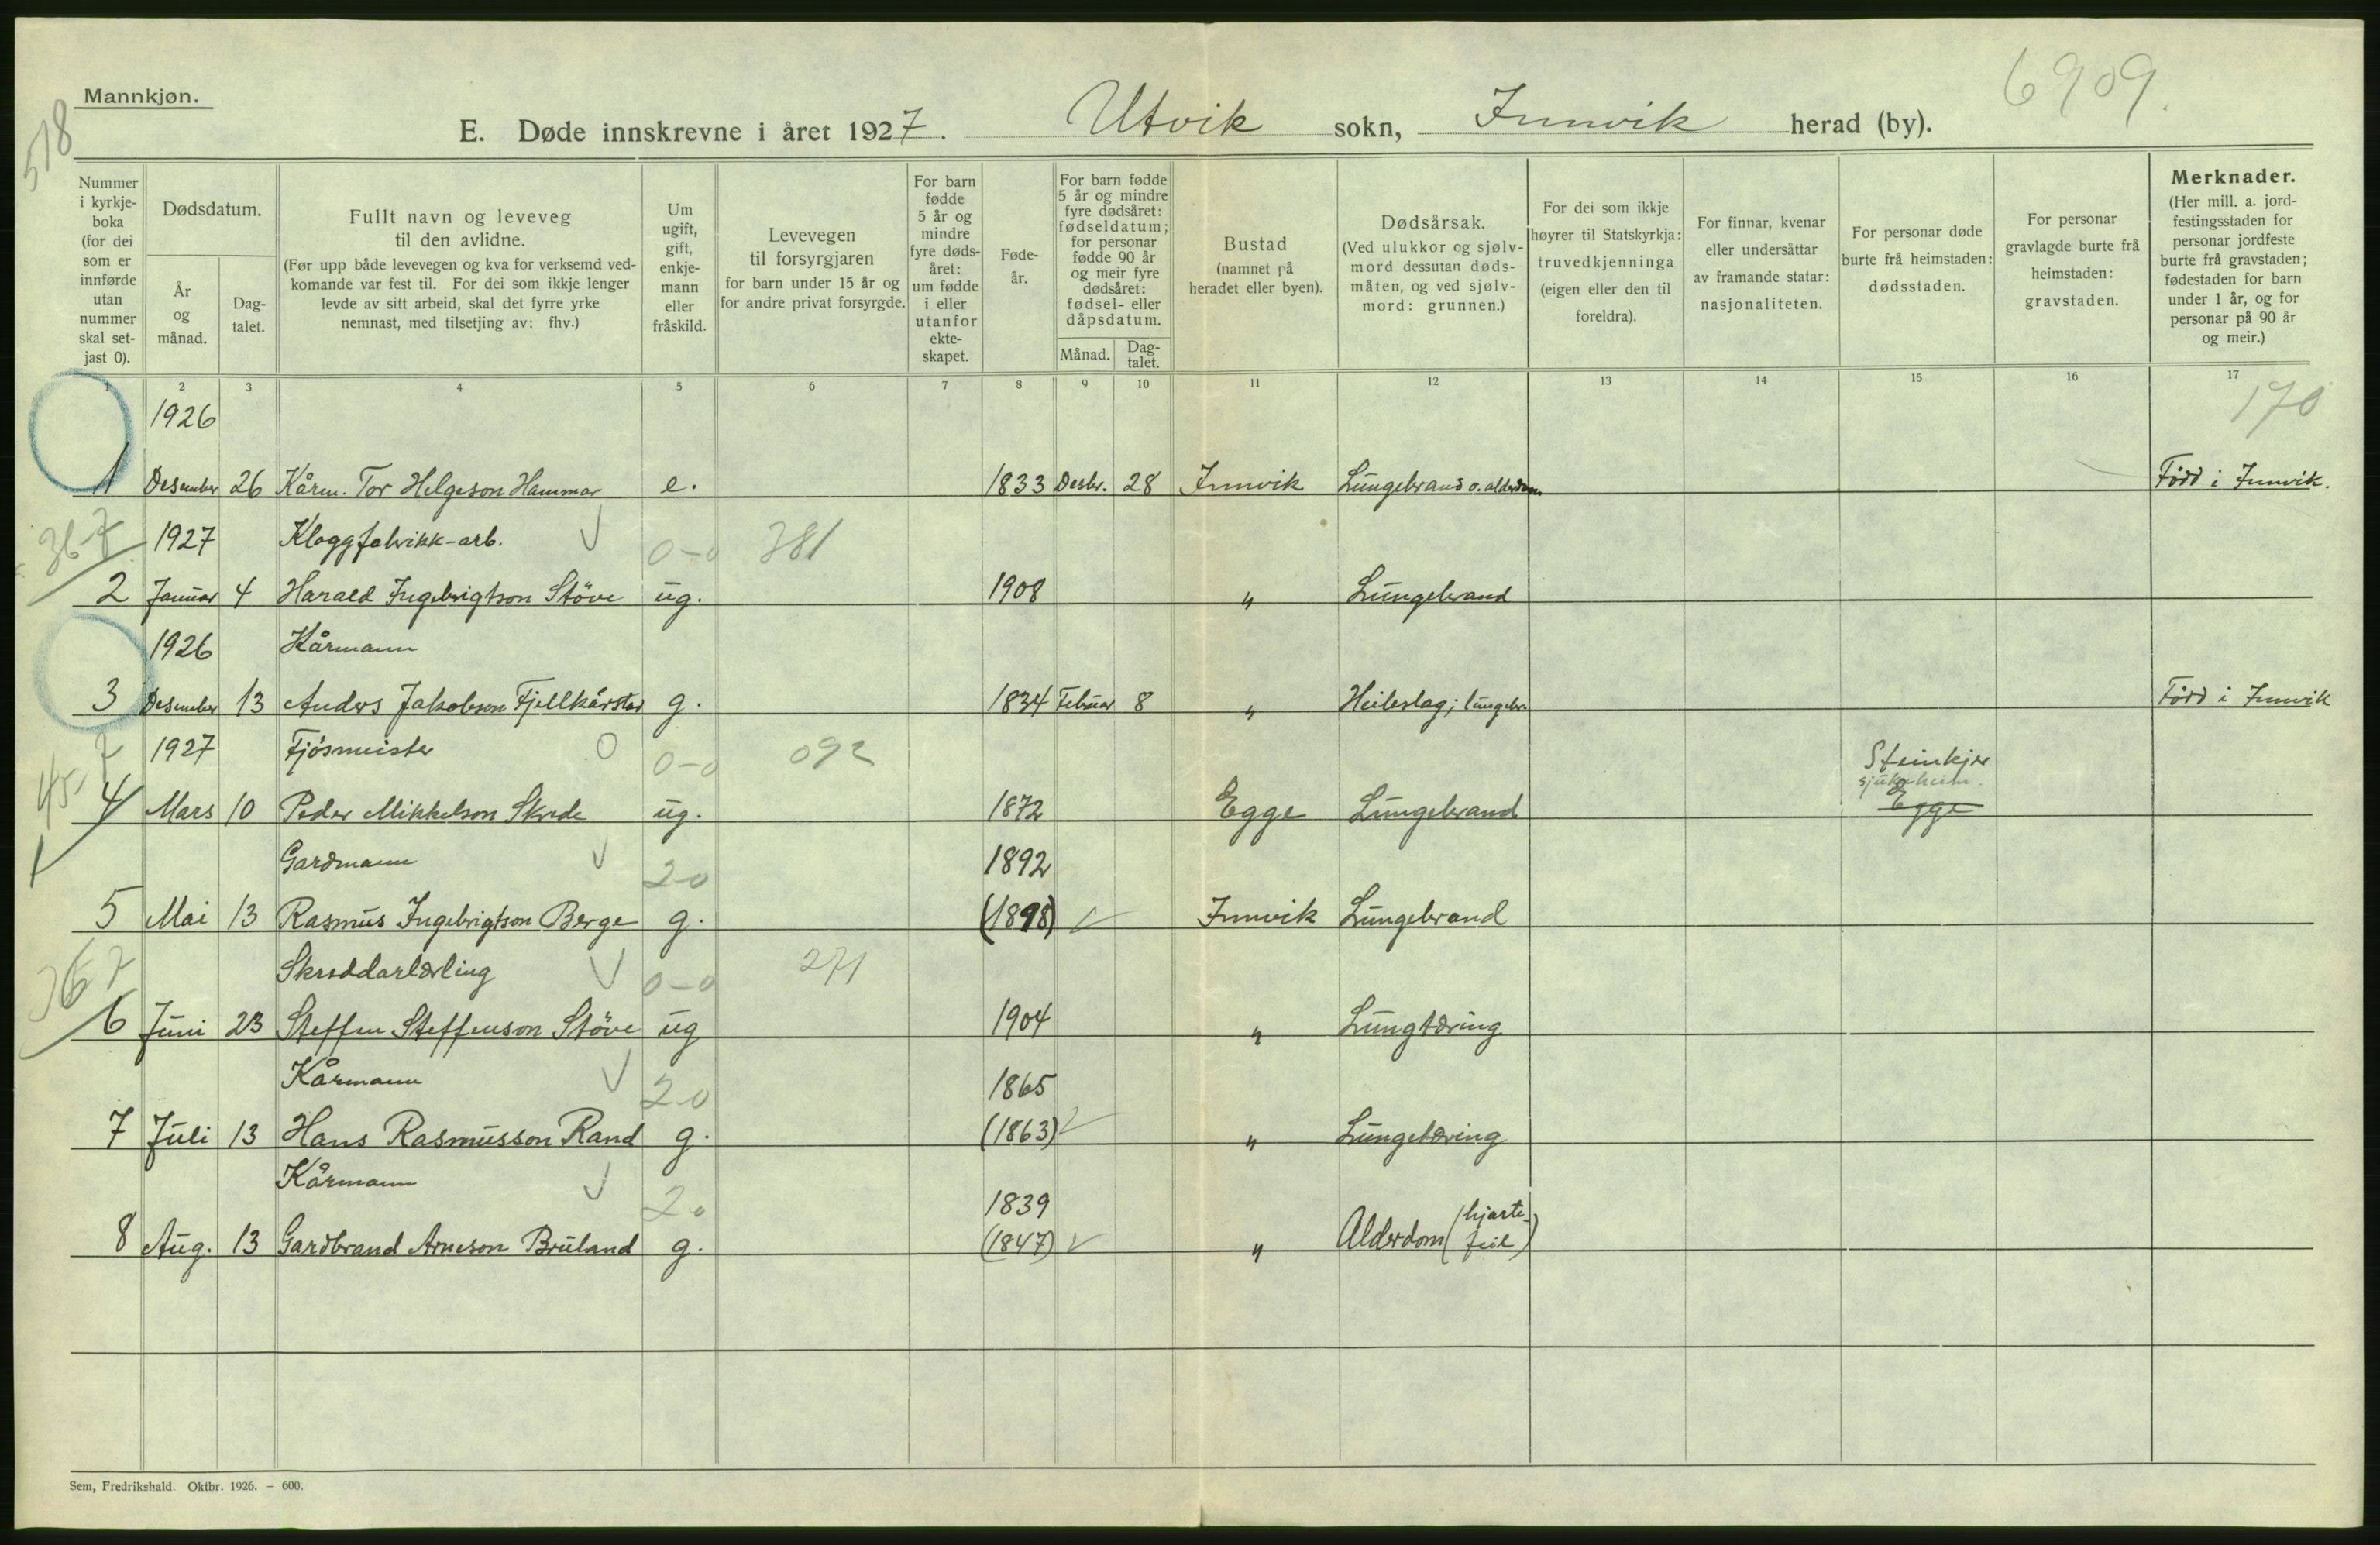 Mannkjøn.
578
E. Døde innskrevne i året 1927. Utvik sokn, Innvik herad (by).
6909.
Nummer i kyrkjeboka (for dei som er innførde utan nummer skal setjast 0).
Dødsdatum.
År og månad.
Dag-talet.
Fullt navn og leveveg til den avlidne.
(Før upp både levevegen og kva for verksemd ved-
komande var fest til. For dei som ikkje lenger
levde av sitt arbeid, skal det fyrre yrke
nemnast, med tilsetjing av: fhv.)
Um ugift, gift, enkje-mann eller fråskild.
Levevegen til forsyrgjaren
for barn under 15 år og
for andre privat forsyrgde.
For barn fødde 5 år og mindre fyre døds-året: um fødde i eller utanfor ekte-skapet.
Føde-år.
For barn fødde 5 år og mindre fyre dødsåret: fødseldatum; for personar fødde 90 år og meir fyre dødsåret: fødsel- eller dåpsdatum.
Månad.
Dag-talet.
Bustad
(namnet på heradet eller byen).
Dødsårsak.
(Ved ulukkor og sjølv-mord dessutan døds-måten, og ved sjølv-mord: grunnen.)
For dei som ikkje høyrer til Statskyrkja: truvedkjenninga (eigen eller den til foreldra).
For finnar, kvenar eller undersåttar av framande statar: nasjonaliteten.
For personar døde burte frå heimstaden: dødsstaden.
For personar gravlagde burte frå heimstaden: gravstaden.
Merknader.
(Her mill. a. jord-festingsstaden for personar jordfeste burte frå gravstaden; fødestaden for barn under 1 år, og for personar på 90 år og meir.)
1 2 3 4 5 6 7 8 9 10 11 12 13 14 15 16 17
1926
170
1 Desember 26 Kårm. Tor Helgeson Hammar e. 1833 Desbr. 28 Innvik Lungebrand o. alderdom Född i Innvik.
367 1927 Kloggfabrikk-arb. 0-0 381
2 Januar 4 Harald Ingebrigtson Stöve ug. 1908 " Lungebrand
1926 Kårmann
3 Desember 13 Anders Jakobson Fjellkårstad g. 1834 Februar 8 " Heileslag; lungebr. Född i Innvik
1927 Fjösmeister 0 0-0 092 Steinkjer
45 sjukeheim.
4 Mars 10 Peder Mikkelson Skrede ug. 1872 Egge Lungebrand Egge
Gardmann 2-0 1892
5 Mai 13 Rasmus Ingebrigtson Berge g. (1898) Innvik Lungebrand
367 Skreddarlærling 0-0 271
6 Juni 23 Steffen Steffenson Stöve ug 1904 " Lungtæring
Kårmann 2-0 1865
7 Juli 13 Hans Rasmusson Rand g. (1863) " Lungetæring
Kårmann 2-0 1839
8 Aug. 13 Gardbrand Arneson Bruland g. (1847) " Alderdom (hjarte-feil)
Sem, Fredrikshald. Oktbr. 1926. – 600.